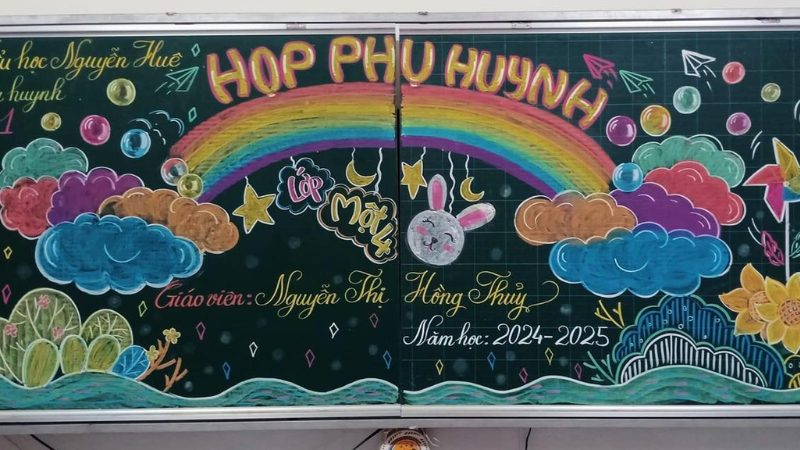 học Nguyễn Huê
huynh
1
HỌP PHỤ HUYNH
Lớp
Một4
Giáo viên: Nguyễn Thị Hồng Thủy
Năm học: 2024-2025